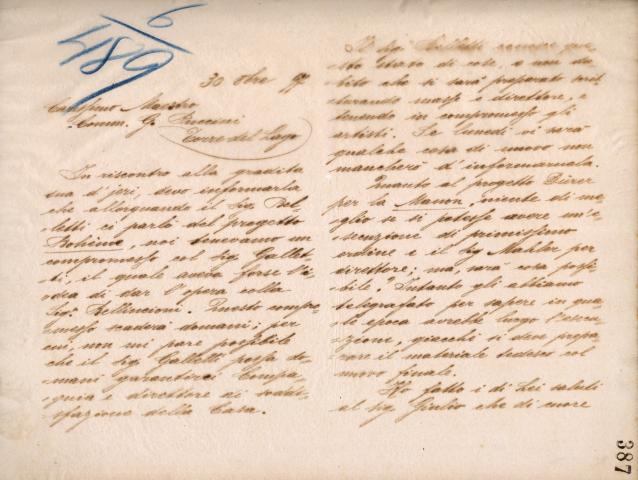 6
489
30 8bre 97
Carissimo Maestro
Comm. G. Puccini
Torre del Lago
In riscontro alla gradita
sua d'jeri, devo informarla
che allorquando il Sig. Bel-
letti ci parlò del progetto
Bohème, noi tenevamo un
compromesso col Sig. Gallet-
ti, il quale aveva forse l'i-
dea di dar l'opera colla
Sig.ª Bellincioni. Questo compro-
messo scaderà domani; per
cui, non mi pare possibile
che il Sig. Galletti possa do-
mani garantirci Compa-
gnia e direttore di soddi-
sfazione della Casa.
Il Sig. Belletti conosce que-
sto stato di cose, e non du-
bito che si sarà preparato scrit-
turando masse e direttore, e
tenendo in compromesso gli
artisti. Se lunedì vi sarà
qualche cosa di nuovo non
mancherò d'informarnela.
Quanto al progetto
per la Manon, niente di me-
glio se si potesse avere un'e-
secuzione di primissimo
ordine e il Sig. Mahler per
direttore; ma, sarà cosa possi-
bile? Intanto gli abbiamo
telegrafato per sapere in qua-
le epoca avrebbe luogo l'esecu-
zione, giacchè si deve prepa-
rare il materiale tedesco col
nuovo finale.
Ho fatto i di Lei saluti
al Sig. Giulio che di cuore
387